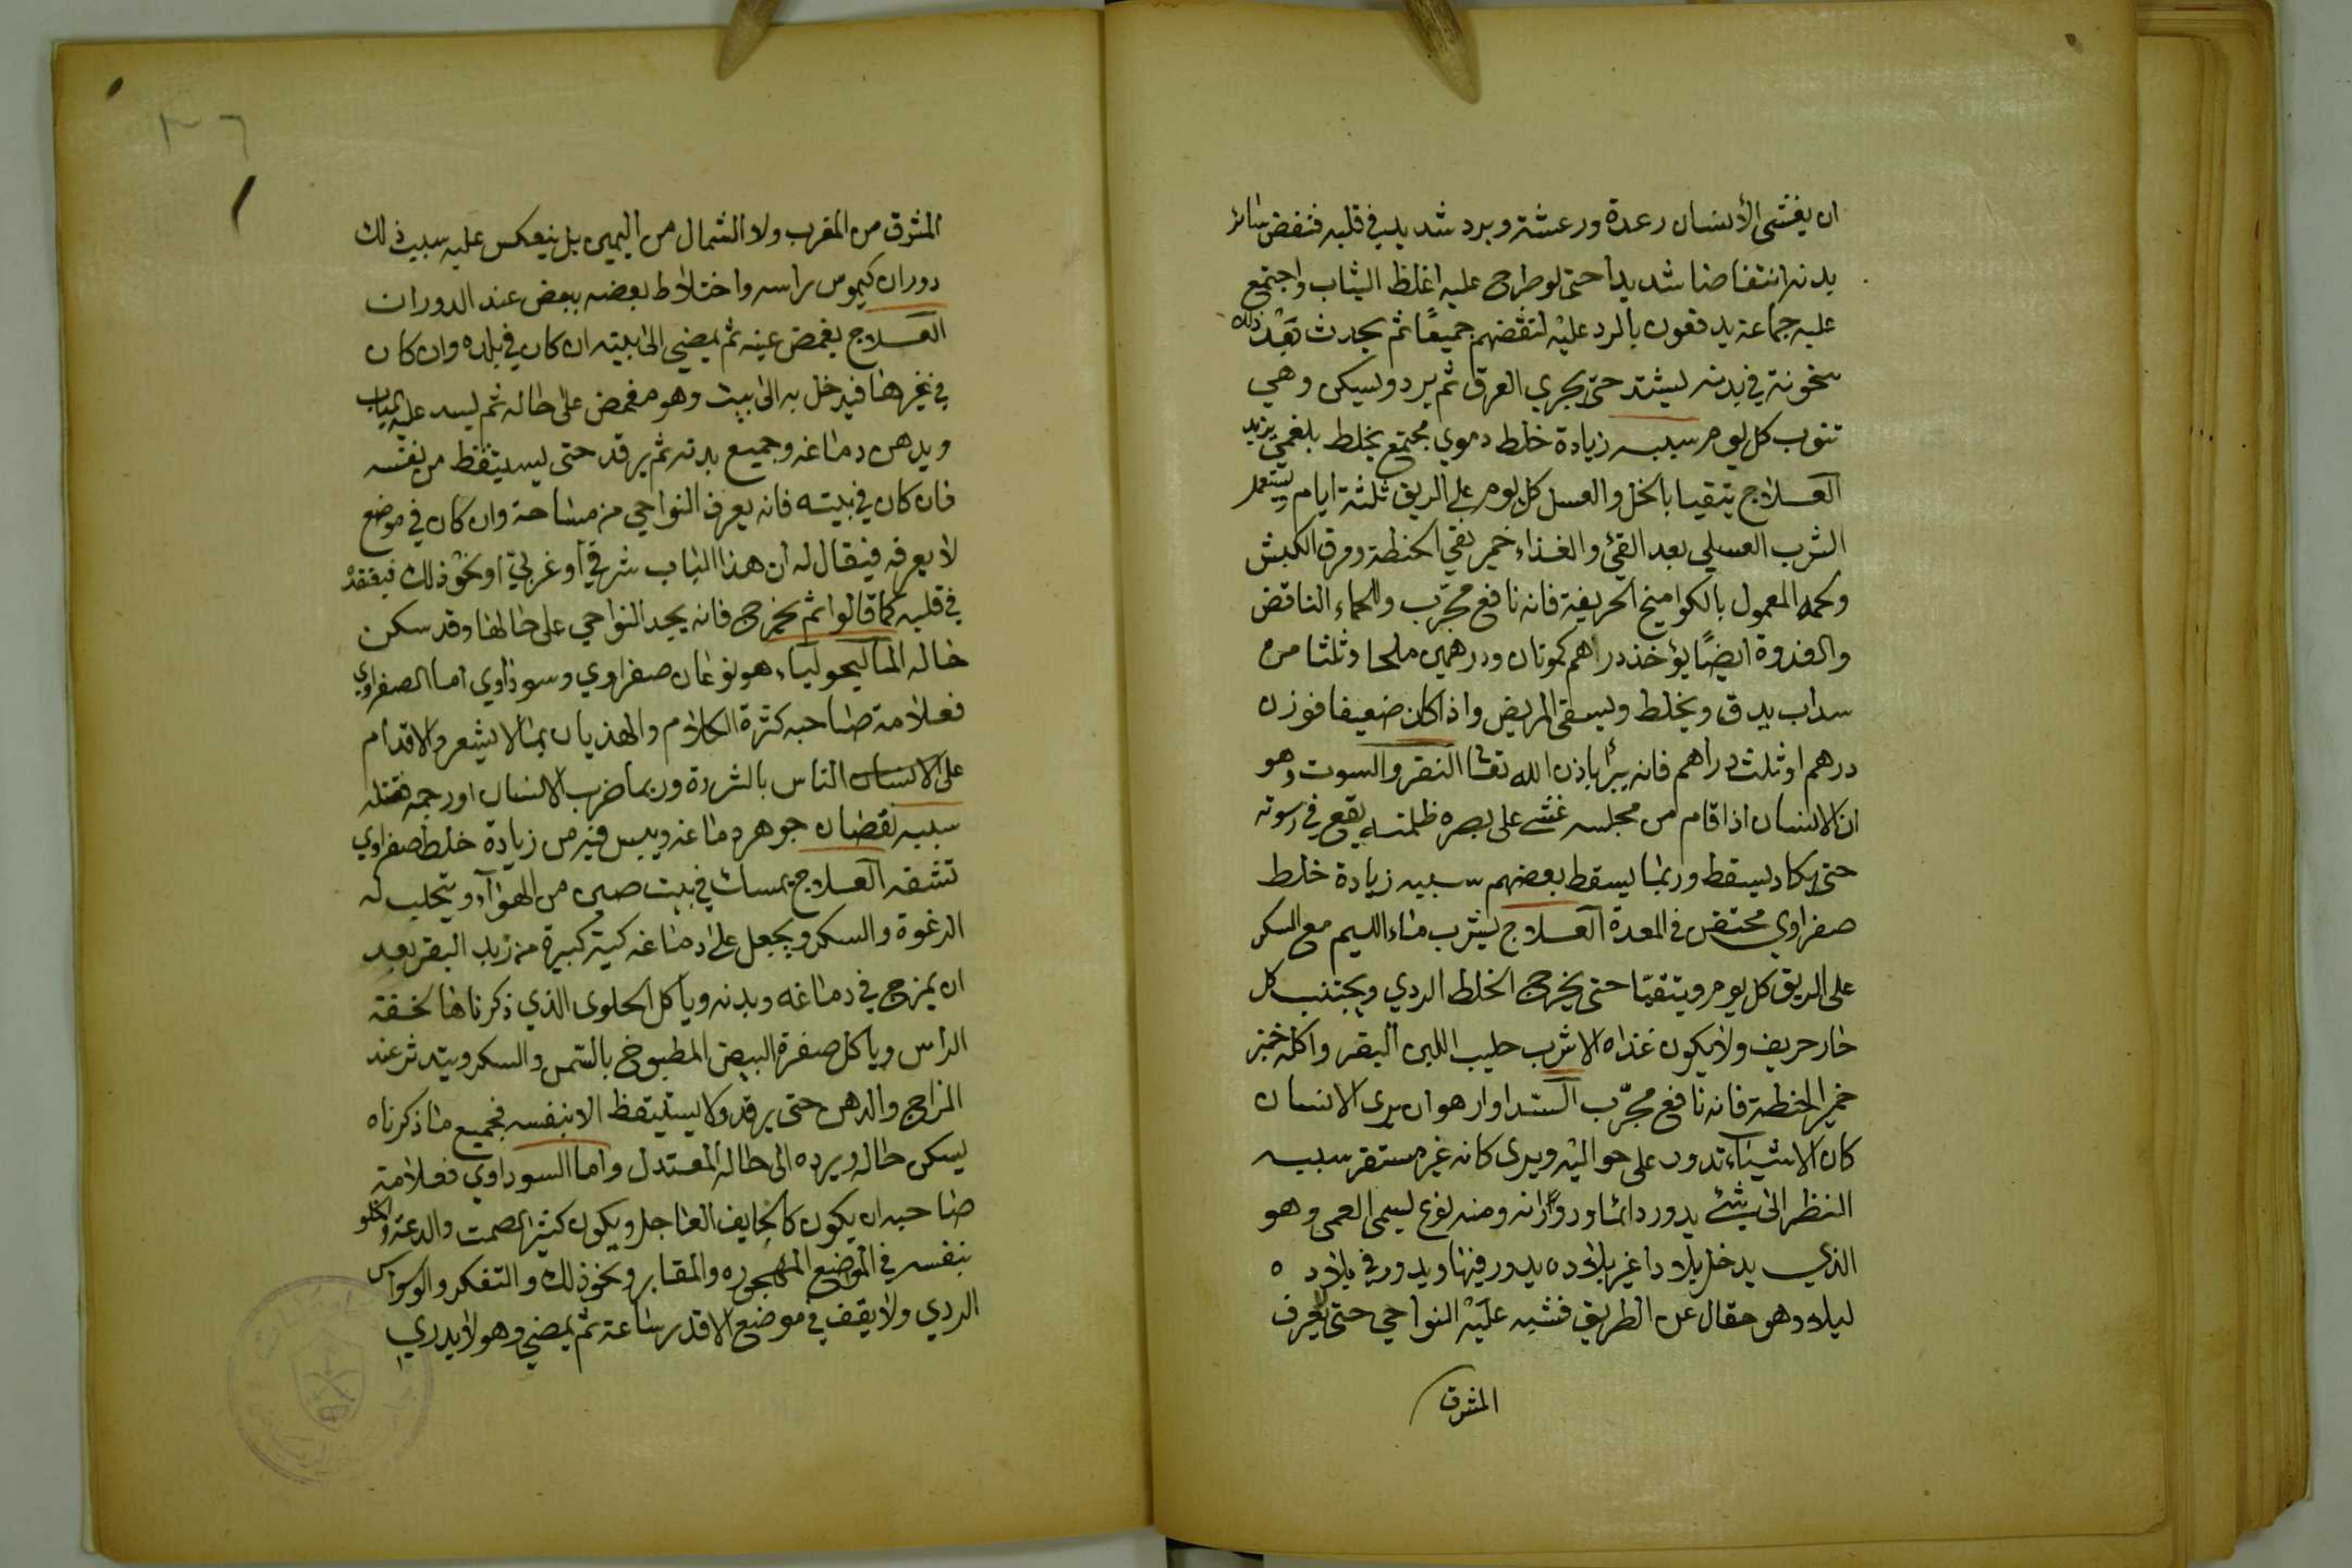 ان يغشى الأنسان رعدة ورعشة وبرد شديد في قلبه فتنفض سائر
بدنه انتفاضا شديدا حتى لو طرح عليه اغلظ الثياب واجتمع
عليه جماعة يدفعون بالرد عليه لنقضهم جميعًا ثم يحدث بعد ذلك
سخونة في بدنه ليشتد حتى يجري العرق ثم يبرد ويسكن وهي
تنوب كل يوم سببه زيادة خلط دموي مجتمع بخلط بلغمي يزيد
العلاج يتقيا بالخل والعسل كل يوم على الريق ثلثة ايام يستعمل
الشرب العسلي بعد القئ والغذاء خمير نقي الحنطة ومرق الكبش
ولحمه المعمول بالكوامخ الحريفة فانه نافع مجرّب والحماء الناقض
والفدوة ايضًا يؤخذ دراهم كمونان ودرهمين ملحا وثلثا من
سداب يدق ويخلط ويسقى المريض واذا كان ضعيفا فوزن
درهم او ثلث دراهم فانه يبرأ باذن الله تعالى النقر والسوت وهو
ان الانسان اذا قام من مجلسه غشى على بصره ظلمة يقع في رسوته
حتى يكاد يسقط وربما يسقط بعضهم سببه زيادة خلط
صفراوي محتقن في المعدة العلاج يشرب ماء الليم مع السكر
على الريق كل يوم ويتقيّا حتى يخرج الخلط الردي ويجتنب كل
حار حريف ولا يكون غذاه الا شرب حليب اللبن البقر واكله خبز
خمير الحنطة فانه نافع مجرّب الستداوار هو ان يرى الانسان
كان الاشياء تدور على حواليه ويرى كانه غير مستقر سببه
النظر الى شئ يدور دائما ودوّارانه ومنه نوع ليسمى العمى وهو
الذي يدخل بلادا غير بلاده يدور فيها ويدور في بلاده
ليلا وهو مقال عن الطريق فتشبه عليه النواحي حتى لا يعرف
المشرق
المشرق من المغرب ولا الشمال من اليمين بل ينعكس عليه سبب ذلك
دوران كيموس براسه واختلاط بعضه ببعض عند الدوران
العلاج يغمض عينه ثم يمضي الى بيته ان كان في بلده وان كان
في غيرها فيدخل به الى بيت وهو مغمض على حاله ثم ليسد عليه الباب
ويدهن دماغه وجميع بدنه ثم يرقد حتى ليستيقظ من نفسه
فان كان في بيته فانه يعرف النواحي من مساحة وان كان في موضع
لا يعرفه فيقال له ان هذا الباب شرقي او غربي او نحو ذلك فيفقد
في قلبه كما قالوا ثم يخرج فانه يجد النواحي على حالها وقد سكن
حاله الماليحولياء هو نوعان صفراوي وسوداوي اما الصفراوي
فعلامة صاحبه كثرة الكلام والهذيان بما لا يشعر والاقدام
على الانسان الناس بالشردة وربما ضرب الانسان او رجمه فقتله
سببه نقصان جوهر دماغه ويبس فيه من زيادة خلط صفراوي
تنشفه العلاج يمسك في بيت صين من الهواء ويحلب له
الرغوة والسكر ويجعل على دماغه كية كبيرة من زبد البقر بعد
ان يمزج في دماغه وبدنه ويأكل الحلوى الذي ذكرناها لخفة
الراس وياكل صفرة البيض المطبوخ بالسمن والسكر ويتدثر عند
المزاج والدهن حتى يرقد ولا يستيقظ الا بنفسه فجميع ما ذكرناه
يسكن حاله ويرده الى حاله المعتدل واما السوداوي فعلامة
صاحبه ان يكون كالخايف العاجل ويكون كثير الصمت والدعة والخلو
بنفسه في الموضع المهجوره والمقابر ونحو ذلك والتفكر والوسواس
الردي ولا يقف في موضع الا قدر ساعة ثم يمضي وهو لا يدري